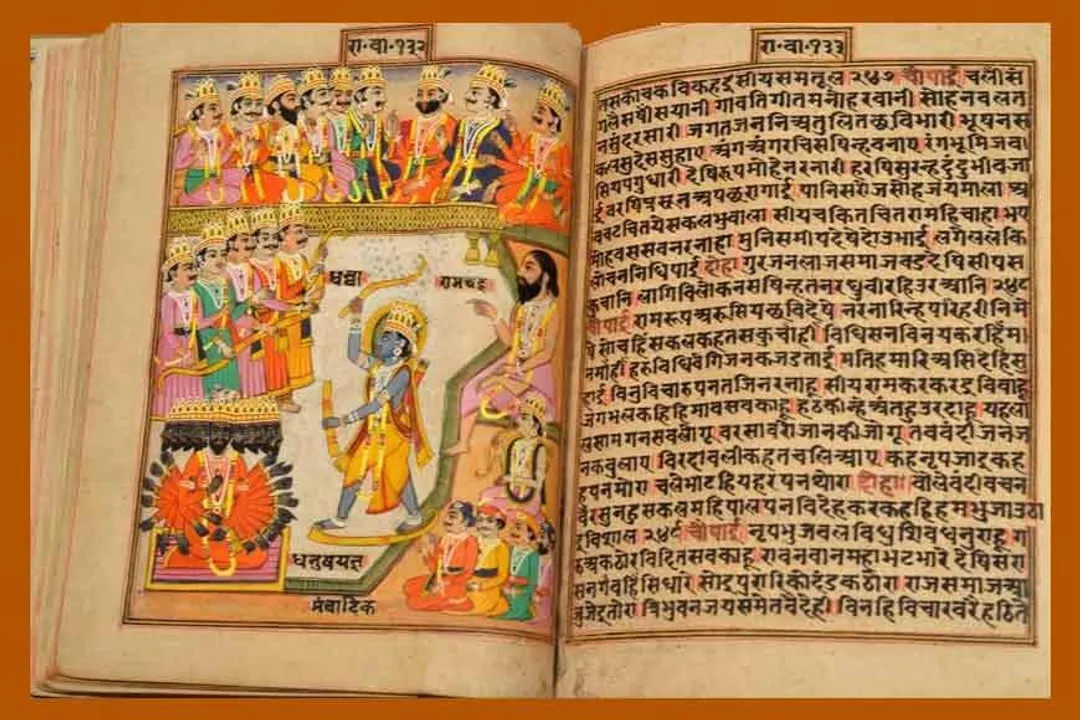 रा॰वा॰१३२
धन्वा
रामचंद्र
धनुषयज्ञ
रा॰वा॰१३३
सीयसमतूल २४७ चौपाई चलीसं
गलैसषीसयानी गावतिगीतमनोहरवानी सोहनवलत
नसुंदरसारी जगतजननिअतुलितछविभारी भूषनस
कलसुदेससुहाए अंगअंगरचिसषिन्हवनाए रंगभूमिजव
सियपगुधारी देषिरूपमोहेनरनारी हरषिसुरन्हदुंदुभीवजा
पानिसरोजसोहजयमाला अ
सकलभुवाला सीयचकितचितरामहिचाहा भए
मोहवससवनरनाहा मुनिसमीपदेषेदोउभाई लगेललकि
लोचननिधिपाई दोहा गुरजनलाजसमाजवडदेषिसीयस
कुचानि लागिविलोकनसषिन्हतनरघुवीरहिउरआनि २४८
चौपाई रामरूपअरुसियछविदेषे नरनारिन्हपरिहरीनिमे
सोचहिंसकलकहतसकुचाहीं विधिसनविनयकरहिंम
नमाहीं हरुविधिवेगिजनकजडताई मतिहमारिअसिदेहिसु
हाई विनुविचारुपनतजिनरनाहू सीयरामकरकरइविवाहू
जगभलकहिहिभावसवकाहू हठकीन्हेअंतहुउरदाहू यहला
लसामगनसवलोगू वरसांवरोजानकीजोगू तववंदीजनज
नकवुलाए विरदावलीकहतचलिआए कहनृपजाइकह
हुपनमोरा चलेभाटहियहरषनथोरा दोहा वोलेवंदीवचन
वरसुनहुसकलमहिपाल पनविदेहकरकहहिहमभुजाउठा
इविशाल २४९ चौपाई नृपभुजवलविधुशिवधनुराहू ग
रुअकठोरविदितसवकाहू रावनवानमहाभटभारे देषिसरा
सनगवंहिसिधारे सोइपुरारिकोदंडकठोरा राजसमाजआ
जुजोइतोरा त्रिभुवनजयसमेतवैदेही विनहिविचारवरैहठिते